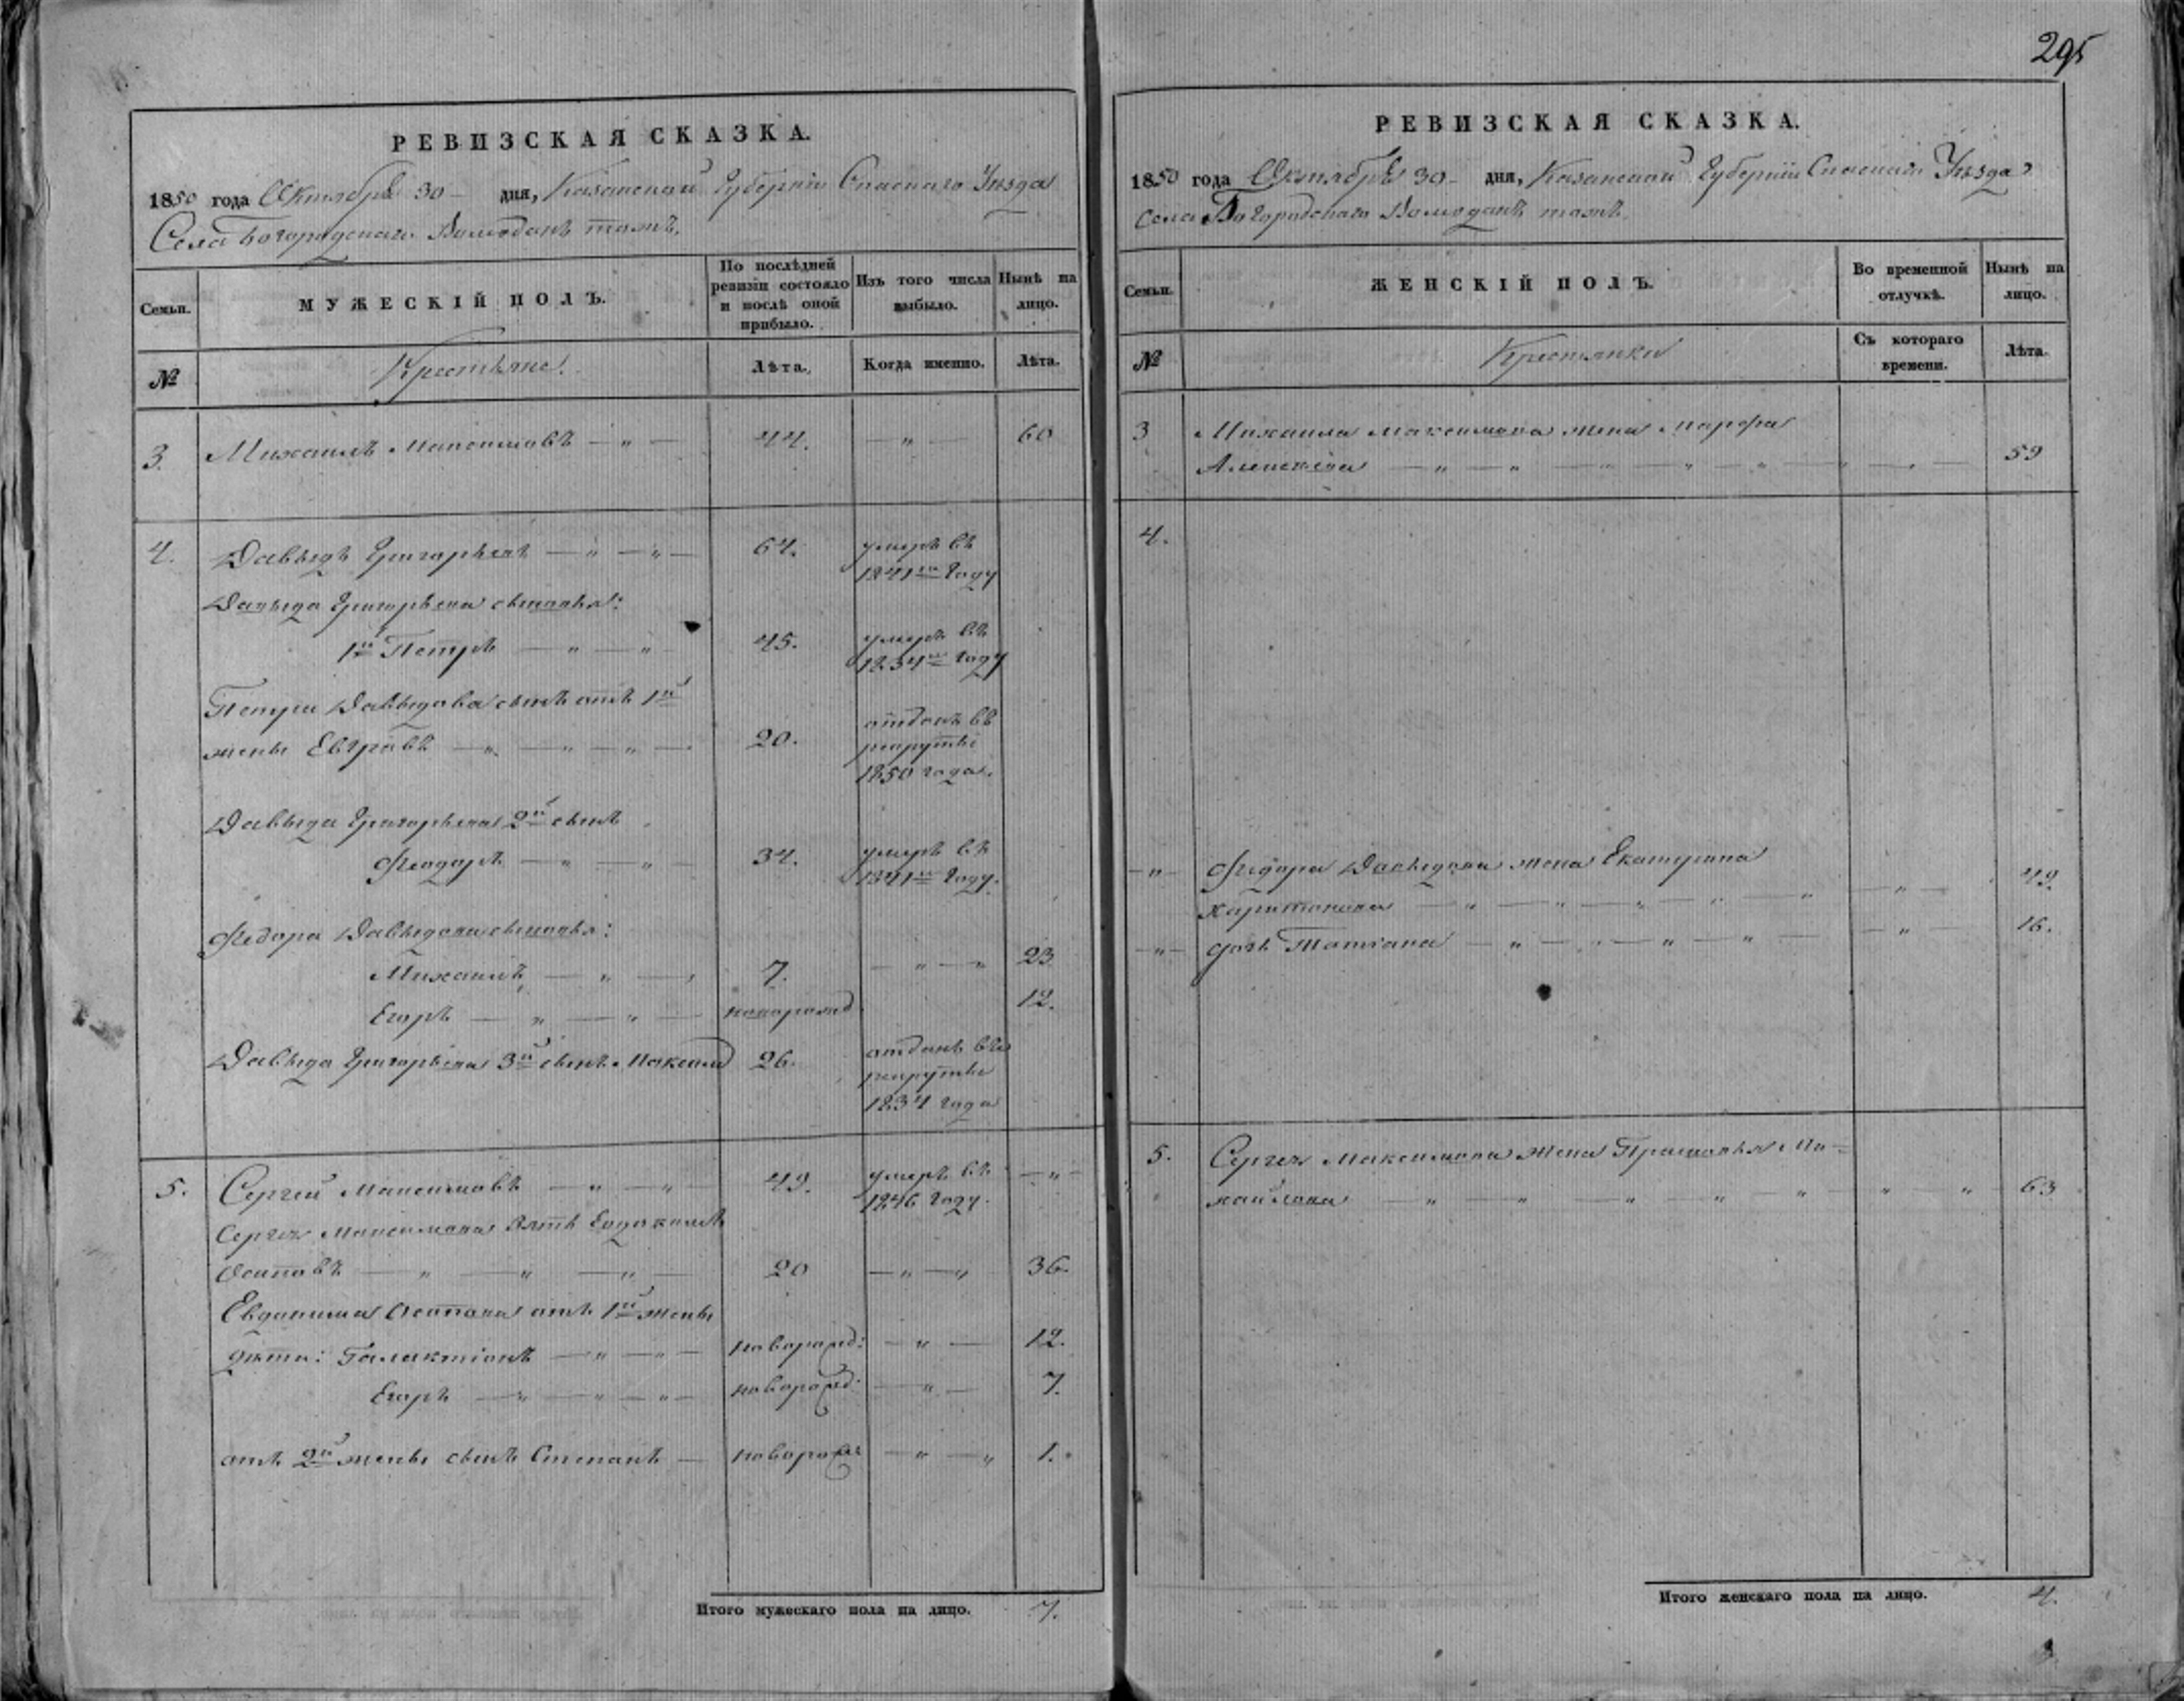 295
РЕВИЗСКАЯ СКАЗКА.
1850 года Октября 30 дня, Казанской Губерніи Спаскаго Уѣзда
Села Богородскаго тожъ.
Семьи.
МУЖЕСКІЙ ПОЛЪ.
По послѣдней ревизіи состояло и послѣ оной прибыло.
Изъ того числа выбыло.
Нынѣ на лицо.
№
Крестьяне.
Лѣта.
Когда именно.
Лѣта.
3. Михаилъ Максимовъ — „ — 44. — „ — 60
4. Давыдъ Григорьевъ — „ — „ — 64. умеръ въ
1841мъ Году
Давыда Григорьева сыновья:
1й Петръ — „ — „ 45. умеръ въ
1834мъ Году
Петра Давыдова сынъ отъ 1й
жены Евграфъ — „ — „ — „ — 20. отданъ въ
рекруты
1850 года.
Давыда Григорьева 2й сынъ
Феодоръ — „ — „ — 34. умеръ въ
1841мъ Году.
Федора Давыдова сыновья:
Михаилъ — „ — „ 7. — „ — „ 23
Егоръ — „ — „ — новорожд 12.
Давыда Григорьева 3й сынъ Максим 26. отданъ въ
рекруты
1834 года
5. Сергей Максимовъ — „ — „ — 49. умеръ въ — „ —
1846 Году.
Сергея Максимова Зять Евдокимъ
Осиповъ — „ — „ — „ — 20 — „ — „ 36.
Евдокима Осипова отъ 1й жены
дѣти: Галактіонъ — „ — „ — новорожд: — „ — 12.
Егоръ — „ — „ — „ — новорожд: — „ — 7.
отъ 2й жены сынъ Степанъ — новорожд — „ — „ 1.
Итого мужескаго пола на лицо. 7.
РЕВИЗСКАЯ СКАЗКА.
1850 года Октября 30 дня, Казанской Губерніи Спаскаго Уѣзда
Села Богородскаго тожъ.
Семьи.
ЖЕНСКІЙ ПОЛЪ.
Во временной отлучкѣ.
Нынѣ на лицо.
№
Крестьянки
Съ котораго времени.
Лѣта.
3 Михаила Максимова жена Марфа
Алексѣева — „ — „ — „ — „ — „ — „ — „ — 59
4.
— „ — Федора Давыдова жена Екатерина
Харитонова — „ — „ — „ — „ — „ — „ — 49.
— „ — дочь Татіана — „ — „ — „ — „ — „ — 16.
5. Сергея Максимова Жена Прасковья Ми=
хайлова — „ — „ — „ — „ — „ — „ — „ 63
Итого женскаго пола на лицо. 4.